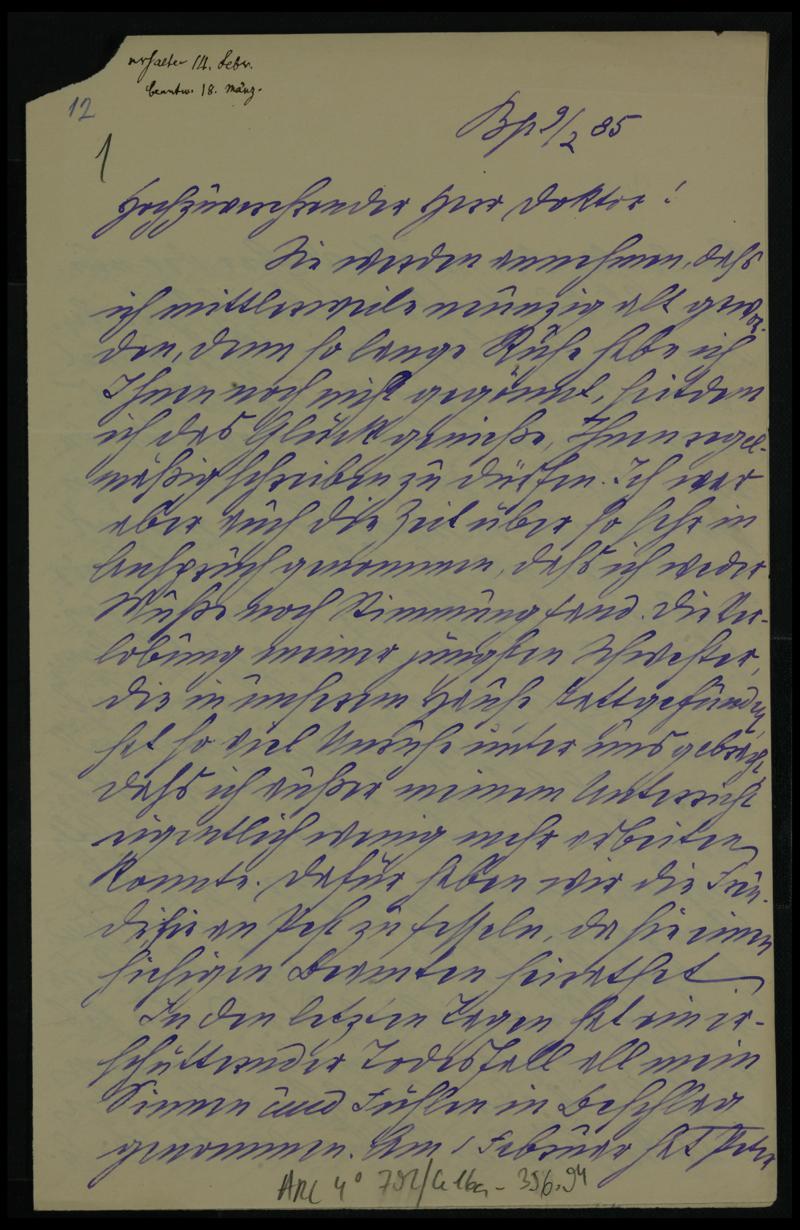 erhalten 14. Febr.
beantw. 18. März.
12
Bp 9/2 85
1
Hochzuverehrender Herr Doktor!
Sie werden annehmen, daß
ich mittlerweile münzig alt gewor-
den, denn so lange Ruhe habe ich
Ihnen noch nicht gegönnt, seitdem
ich das Glück genieße, Ihnen regel-
mäßig schreiben zu dürfen. Ich war
aber auch die Zeit über so sehr in
Anspruch genommen, daß ich weder
Muße noch Stimmung fand. Die Ver-
lobung meiner jüngsten Schwester,
die in unserem Hause stattgefunden
hat so viel Unruhe unter uns gebracht
daß ich außer meinem Unterricht
eigentlich wenig mehr arbeiten
konnte. Dafür haben wir die Freu-
de sie an Pest zu fesseln, da sie einen
hiesigen Beamten heirathet
In den letzten Tagen hat ein er-
schütternder Todesfall all mein
Sinnen und Fühlen in Beschlag
genommen. Am 1 Februar hat
ARC 4° 792/